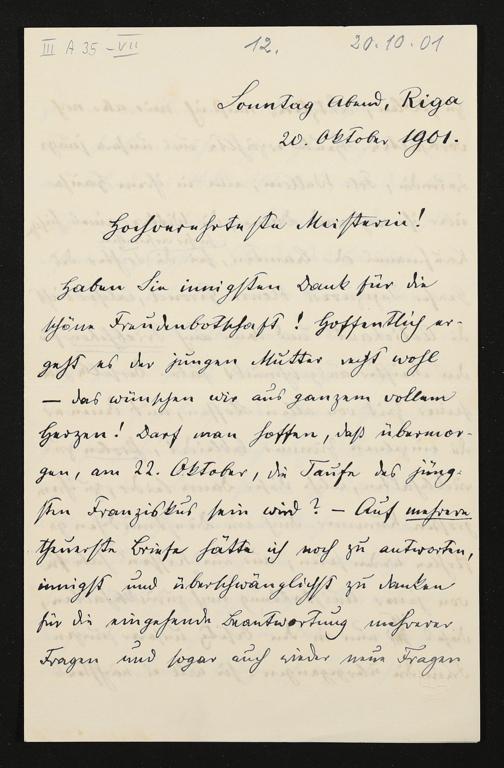 III A 35 - VII 12. 20.10.01
Sonntag Abend, Riga
20. Oktober 1901.
Hochverehrteste Meisterin!
Haben Sie innigsten Dank für die
schöne Freudenbotschaft! Hoffentlich er-
geht es der jungen Mutter recht wohl
— das wünschen wir aus ganzem vollem
Herzen! Darf man hoffen, daß übermor-
gen, am 22. Oktober, die Taufe des jüng-
sten Franziskus sein wird? — Auf mehrere
theuerste Briefe hätte ich noch zu antworten,
innigst und überschwänglichst zu danken
für die eingehende Beantwortung mehrerer
Fragen und sogar auch wieder neue Fragen